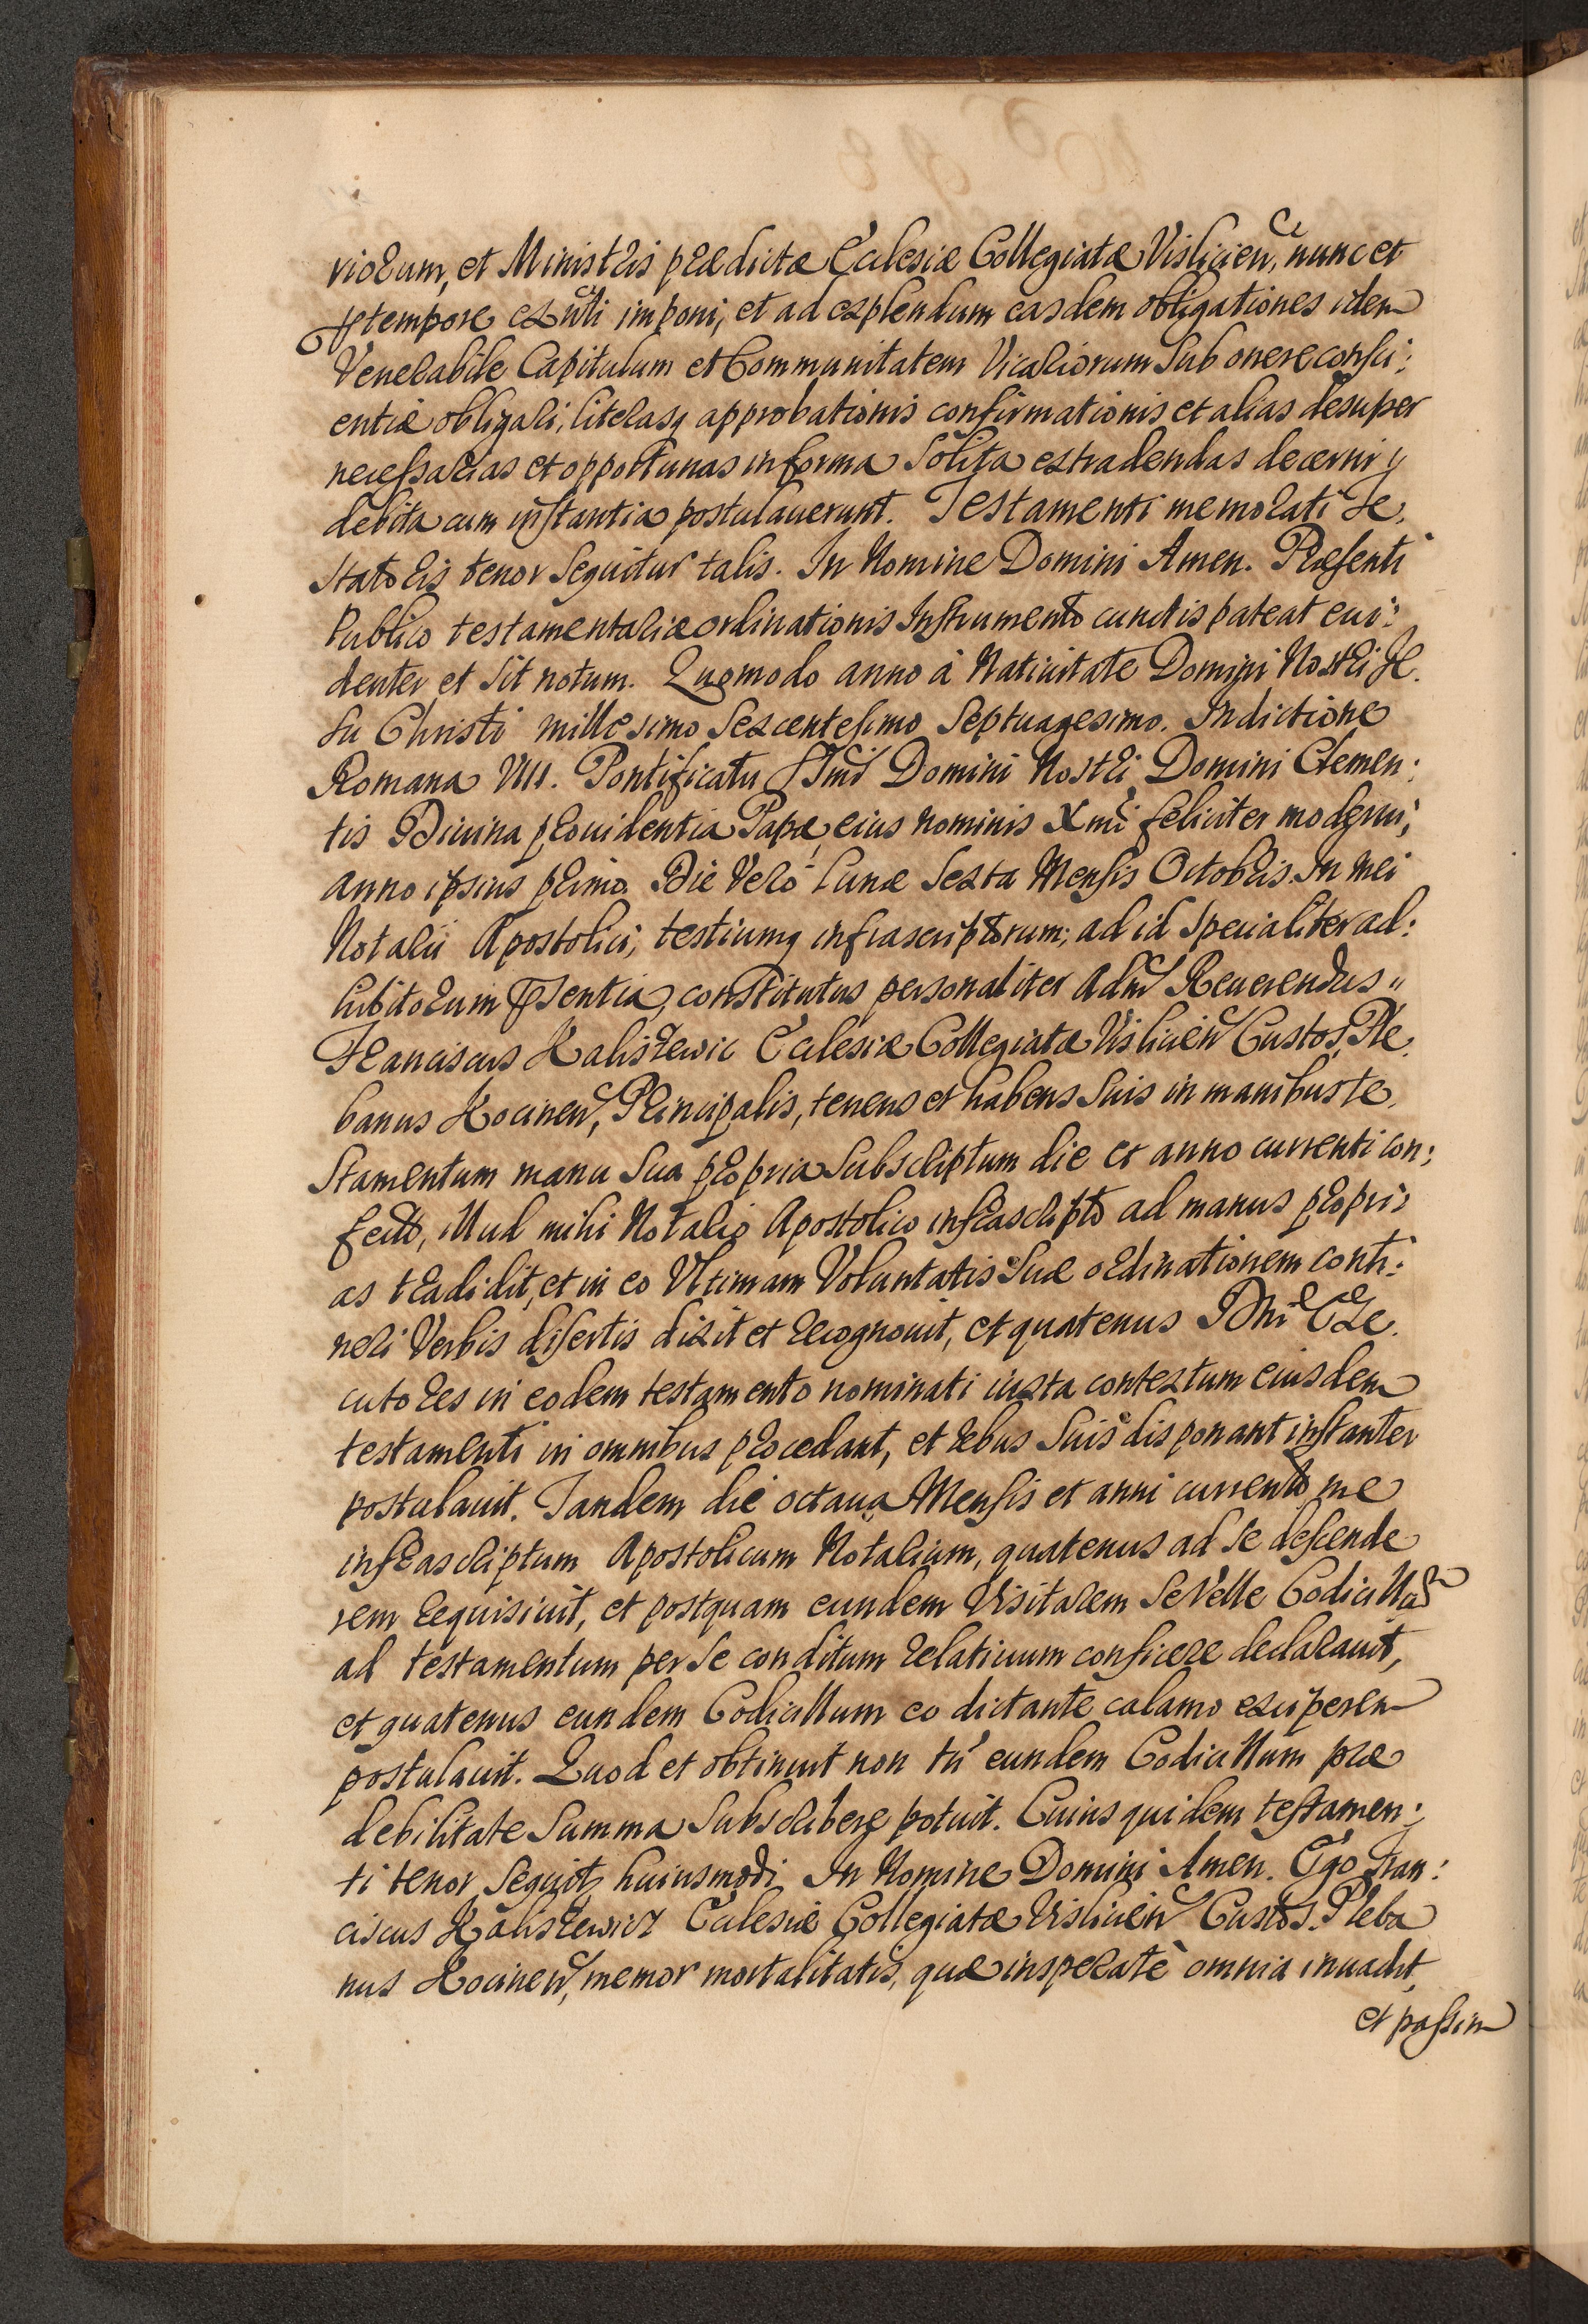 riorum, et Ministris prædictæ Ecclesiæ Collegiatæ Vislicieñ, nunc et
ꝓ tempore exñti imponi, et ad explendum easdem obligationes idem
Venerabile Capitulum et Communitatem Vicariorum sub onere consci:
entiæ obligari, literasq approbationis confirmationis et alias desuper
necessarias et opportunas in forma solita extradendas decerni
debita cum instantia postulauerunt. Testamenti memorati Te.
statoris tenor sequitur talis. In Nomine Domini Amen. Præsenti
Publico testamentariæ ordinationis Instrumento cunctis pateat eui:
denter et sit notum. Quomodo anno à Natiuitate Domini Nostri Je.
su Christi millesimo sexcentesimo septuagesimo. Indictione
Romana VIII. Pontificatu SSmi Domini Nostri Domini Clemen:
tis Diuina prouidentia Papæ, eius nominis Xmi feliciter moderni,
anno ipsius primo. Die Verò Lunæ Sexta Mensis Octobris. In mei
Notarii Apostolici, testiumq infrascriptorum, ad id specialiter ad:
hibitorum ꝓsentia, constitutus personaliter Admd Reuerendus
Franciscus Kaliszewic Ecclesiæ Collegiatæ Visliciеñ Custos, Ple.
banus Kocineñ, Principalis, tenens et habens suis in manibus te.
stamentum manu sua propria subscriptum die et anno currenti con:
fectũ, illud mihi Notario Apostolico infrascripto ad manus propri:
as tradidit, et in eo Vltimam Voluntatis suæ ordinationem conti:
neri Verbis disertis dixit et recognouit, et quatenus Dñi Exe.
cutores in eodem testamento nominati iuxta contextum eiusdem
testamenti in omnibus procedant, et rebus suis disponant instanter
postulauit. Tandem die octaua Mensis et anni currentũ me
infrascriptum Apostolicum Notarium, quatenus ad se descende
rem requisiuit, et postquam eundem Visitarem se Velle Codicillũ
ad testamentum per se conditum relatiuum conficere declarauit,
et quatenus eundem Codicillum eo dictante calamo exciperem
postulauit. Quod et obtinuit non tñ eundem Codicillum præ
debilitate summa subscribere potuit. Cuius quidem testamen:
ti tenor sequitr huiusmodi. In Nomine Domini Amen. Ego Fran:
ciscus Kaliszewicz Ecclesiæ Collegiatæ Visliciеñ Custos. Pleba
nus Kocineñ, memor mortalitatis, quæ insperatè omnia inuadit,
et passim